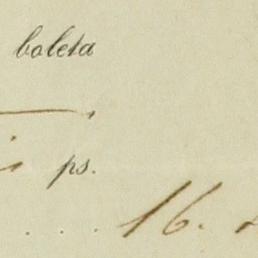 boleta
ps.
16.